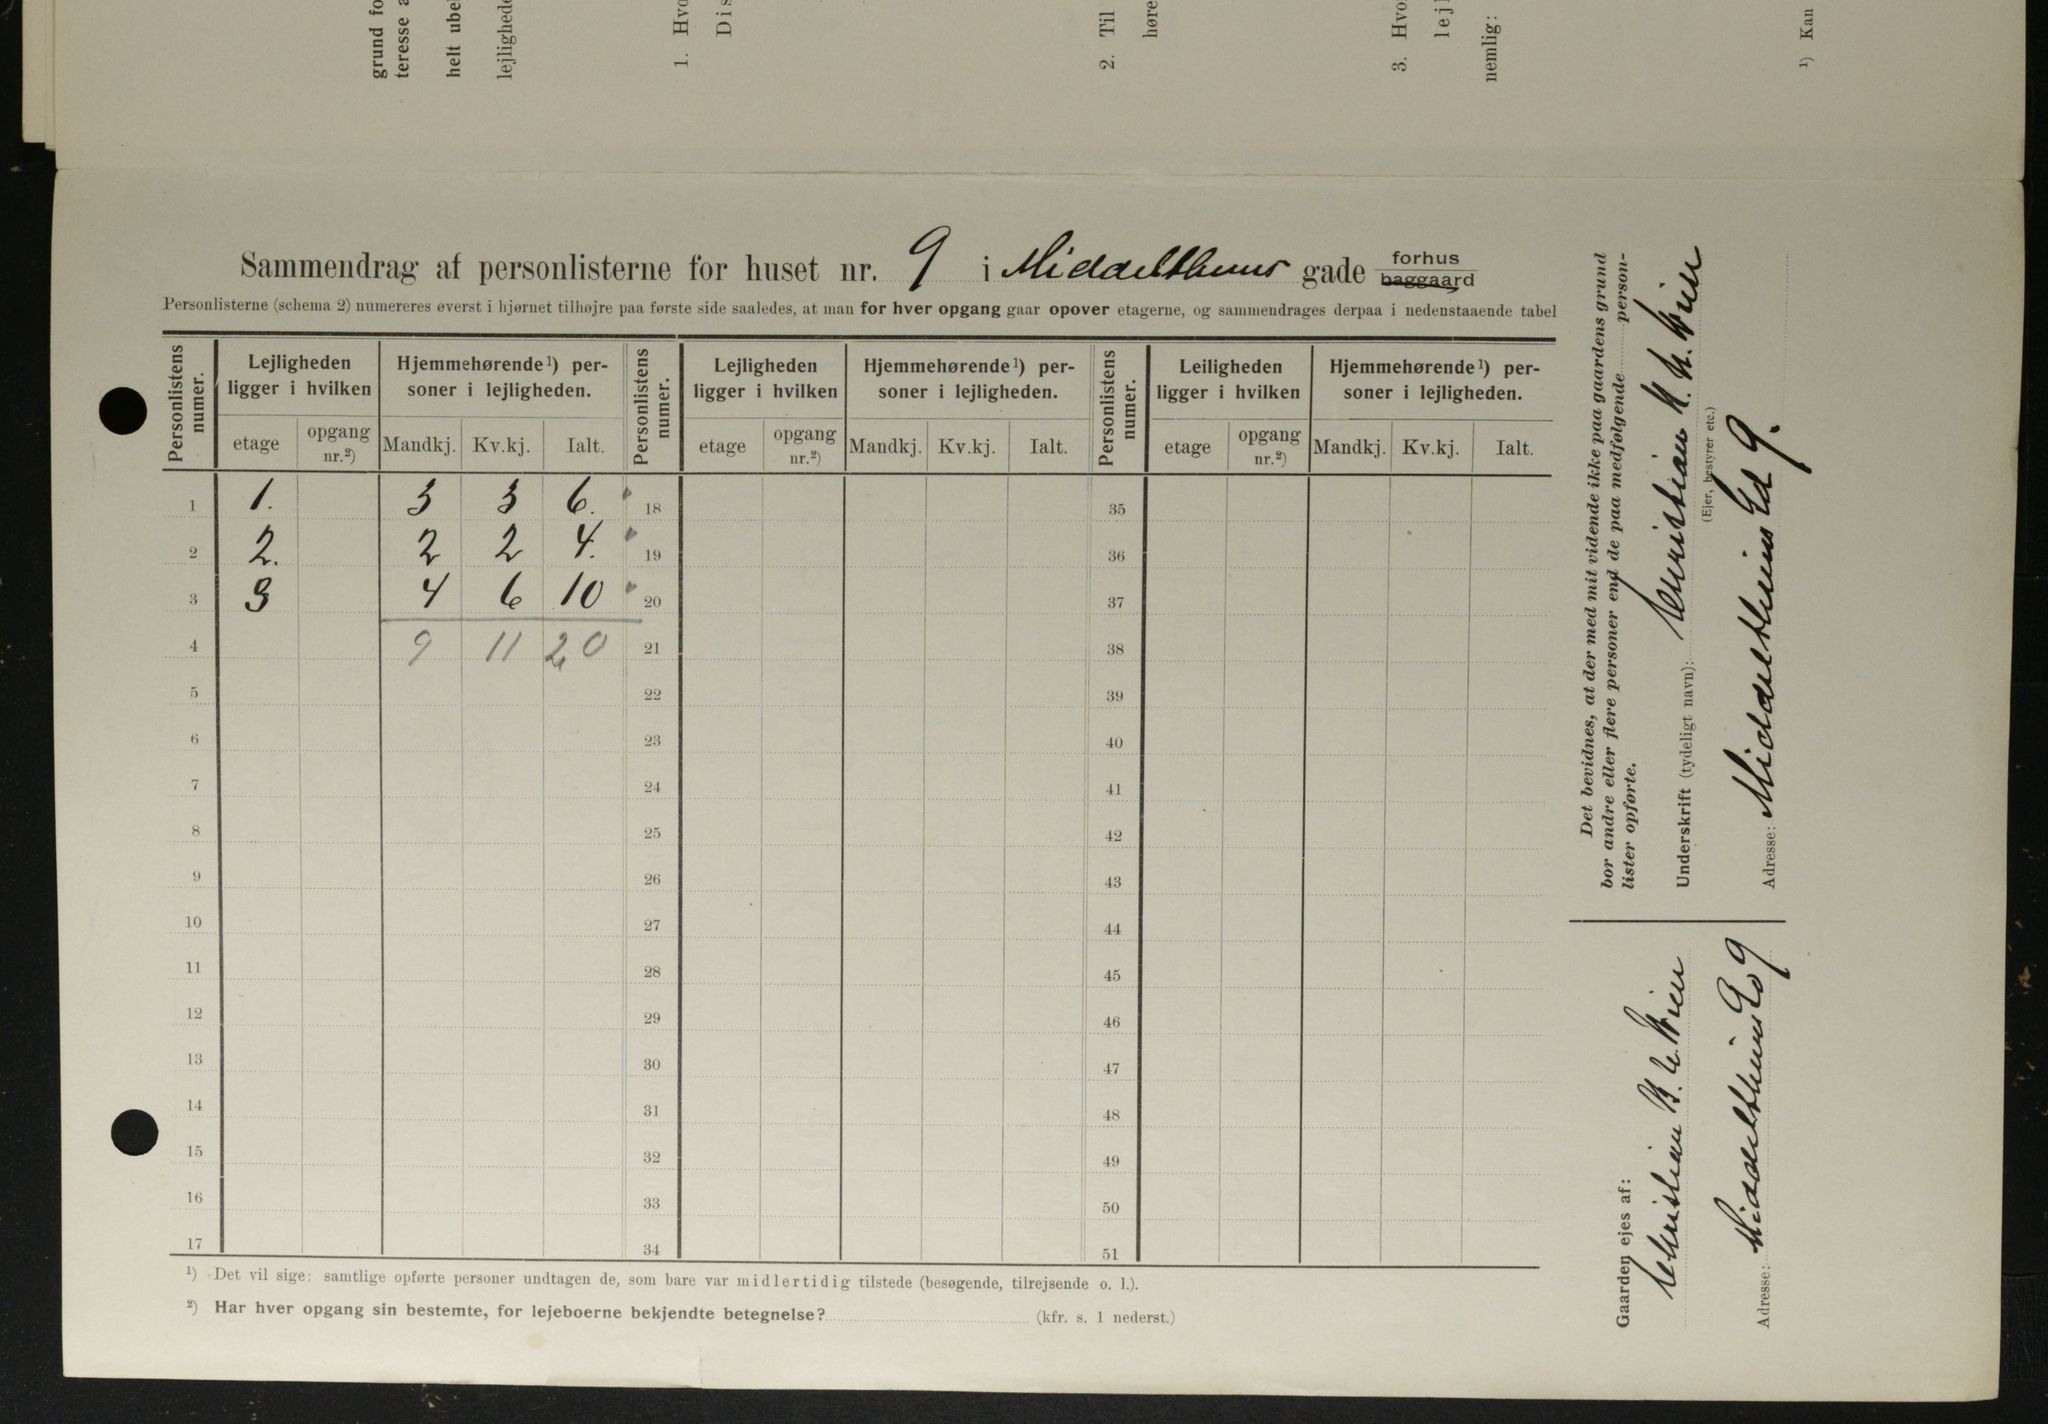 grund fo
teresse a
helt ubel
lejlighede
1. Hvo
Dis
2. Til
høre
3. Hvo
lejl
nemlig:
¹) Kan
Sammendrag af personlisterne for huset nr. 9 i Middelthuns gade forhus
baggaard
Personlisterne (schema 2) numereres øverst i hjørnet tilhøjre paa første side saaledes, at man for hver opgang gaar opover etagerne, og sammendrages derpaa i nedenstaaende tabel
Personlistens numer. Lejligheden ligger i hvilken Hjemmehørende¹) per-soner i lejligheden. Personlistens numer. Lejligheden ligger i hvilken Hjemmehørende¹) per-soner i lejligheden. Personlistens numer. Leiligheden ligger i hvilken Hjemmehørende¹) per-soner i lejligheden.
etage opgang nr.²) Mandkj. Kv.kj. Ialt. etage opgang nr.²) Mandkj. Kv.kj. Ialt. etage opgang nr.²) Mandkj. Kv.kj. Ialt.
1 1. 3 3 6. 18 35
2 2. 2 2 4. 19 36
3 3 4 6 10 20 37
4 9 11 20 21 38
5 22 39
6 23 40
7 24 41
8 25 42
9 26 43
10 27 44
11 28 45
12 29 46
13 30 47
14 31 48
15 32 49
16 33 50
17 34 51
¹) Det vil sige: samtlige opførte personer undtagen de, som bare var midlertidig tilstede (besøgende, tilrejsende o. l.).
²) Har hver opgang sin bestemte, for lejeboerne bekjendte betegnelse? (kfr. s. 1 nederst.)
Det bevidnes, at der med mit vidende ikke paa gaardens grund
bor andre eller flere personer end de paa medfølgende person-
lister opførte.
Underskrift (tydeligt navn): Christian
(Ejer, bestyrer etc.)
Adresse: Middelthuns Gd 9.
Gaarden ejes af:
Christian
Adresse: Middelthuns Gd 9